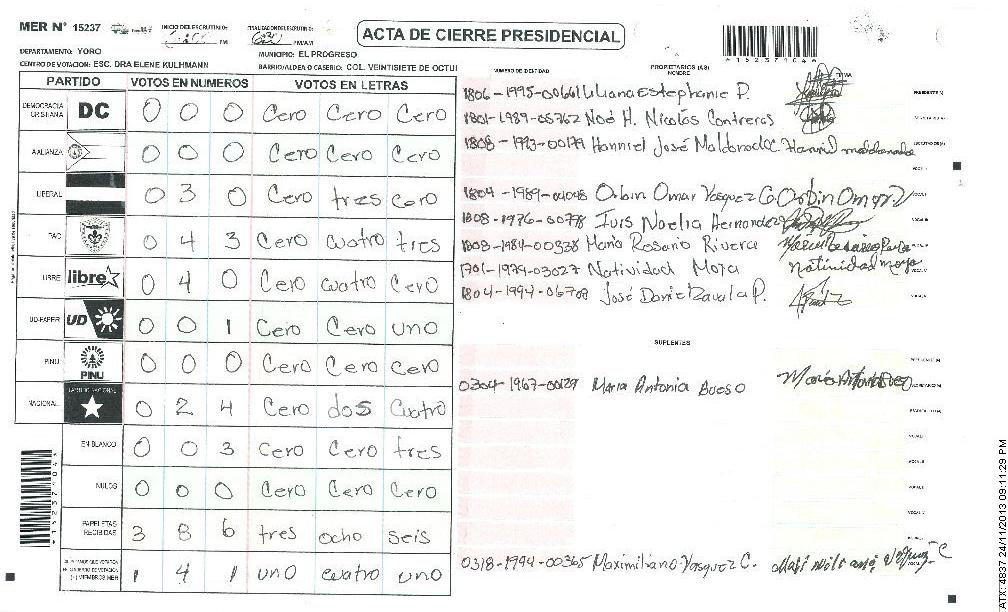 MER N° 15237 INICIO DEL ESCRUTINIO: PM FINALIZACION DEL ESCRUTINIO: PM/AM
ACTA DE CIERRE PRESIDENCIAL
DEPARTAMENTO: YORO MUNICIPIO: EL PROGRESO
CENTRO DE VOTACION: ESC. DRA ELENE KULHMANN BARRIO/ALDEA O CASERIO: COL. VEINTISIETE DE OCTU
PARTIDO VOTOS EN NUMEROS VOTOS EN LETRAS
DEMOCRACIA CRISTIANA DC 0 0 0 Cero Cero Cero
ALIANZA 0 0 0 Cero Cero Cero
LIBERAL 0 3 0 Cero tres cero
PAC 0 4 3 Cero cuatro tres
LIBRE libre 0 4 0 Cero cuatro Cero
UD-FAPER UD 0 0 1 Cero Cero uno
PINU PINU 0 0 0 Cero Cero Cero
NACIONAL PARTIDO NACIONAL 0 2 4 Cero dos Cuatro
EN BLANCO 0 0 3 Cero Cero tres
NULOS 0 0 0 Cero Cero Cero
PAPELETAS RECIBIDAS 3 8 6 tres ocho seis
MIEMBROS MER 1 4 1 uno cuatro uno
NUMERO DE IDENTIDAD PROPIETARIOS (AS) NOMBRE FIRMA
1806-1995-00661 Liliana Estephanie P.
1801-1989-05762 Noé H. Nicolás Contreras
1808-1993-00179 Hanniel José Maldonado C. Hanniel maldonado
1804-1989-01048 Orbin Omar Vasquez G Orbin Omar V
1808-1976-00778 Iris Noelia Hernandez
1808-1984-00338 Maria Rosario Rivera
1701-1979-03027 Natividad Moya natividad moya
1804-1994-06708 José Daniel Zavala P.
SUPLENTES
0304-1967-00129 Maria Antonia Bueso
0318-1994-00365 Maximiliano Vasquez C.
152371043
ATX: 4837 24/11/2013 09:11:29 PM